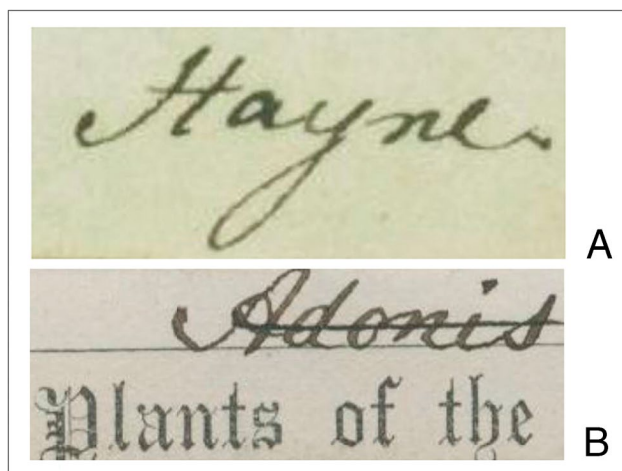 Hayne
A
Adonis
Plants of the
B